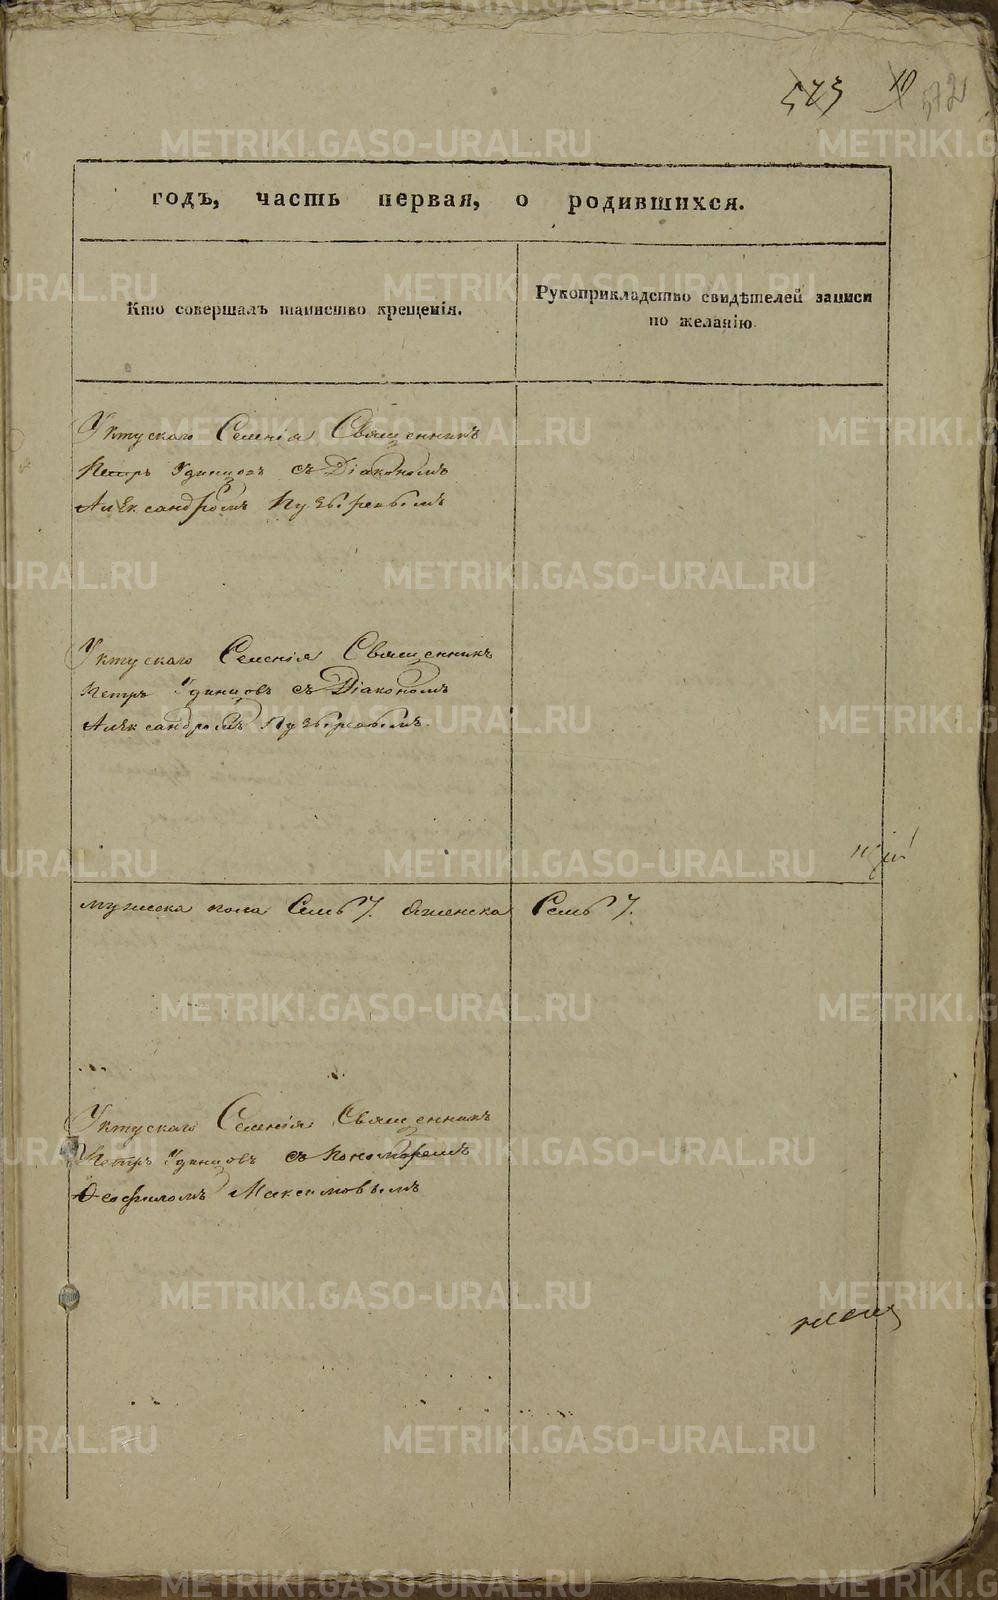 573 572
годъ, часть первая, о родившихся.
Кто совершалъ таинство крещенія.
Рукоприкладство свидѣтелей записи
по желанію.
Уктускаго Селенія Священникъ
Петръ Удинцовъ съ Діакономъ
Алѣксандромъ Пузыревымъ
Уктускаго Селенія Священникъ
Петръ Удинцовъ съ Діакономъ
Алѣксандромъ Пузыревымъ.
мужеска пола Семь 7. Женска Семь 7.
Уктускаго Селенія Священникъ
Петръ Удинцовъ съ Пономоремъ
Ѳеофиломъ Максимовымъ
METRIKI.GASO-URAL.RU